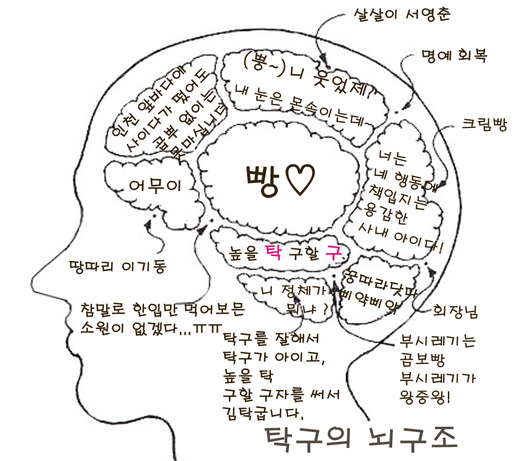 살살이 서영춘
명예 회복
(뿅~) 니 웃었제?
내 눈은 못속이는데~
인천 앞바다에
사이다가 떴어도
곱뿌 없이는
못마십니다
크림빵
너는
네 행동에
책임지는
용감한
사내 아이다!
어무이
빵♡
높을 탁 구할 구
땅따리 이기동
니 정체가
뭐냐?
쿵따라닷따
삐약삐약
참말로 한입만 먹어보믄
소원이 없겠다...ㅠㅠ
회장님
탁구를 잘해서
탁구가 아이고,
높을 탁
구할 구자를 써서
김탁굽니다.
부시레기는
곰보빵
부시레기가
왕중왕!
탁구의 뇌구조